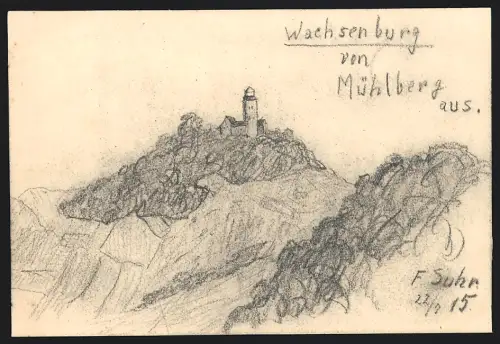 Wachsenburg
von
Mühlberg
aus.
F Suhr
22/7 15